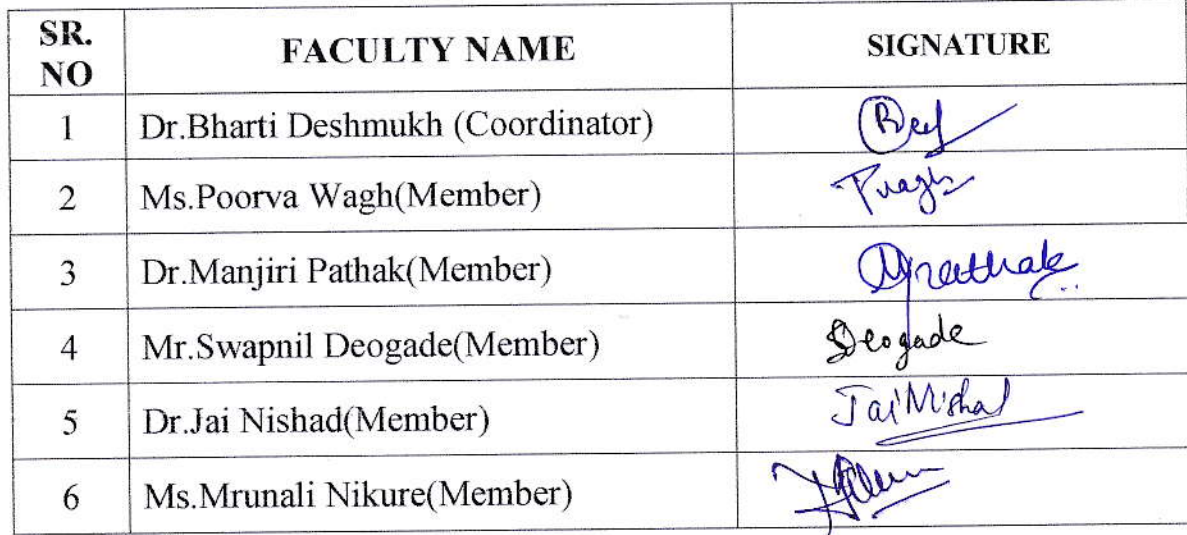 SR. NO FACULTY NAME SIGNATURE
1 Dr.Bharti Deshmukh (Coordinator)
2 Ms.Poorva Wagh(Member)
3 Dr.Manjiri Pathak(Member)
4 Mr.Swapnil Deogade(Member) Deogade
5 Dr.Jai Nishad(Member)
6 Ms.Mrunali Nikure(Member)